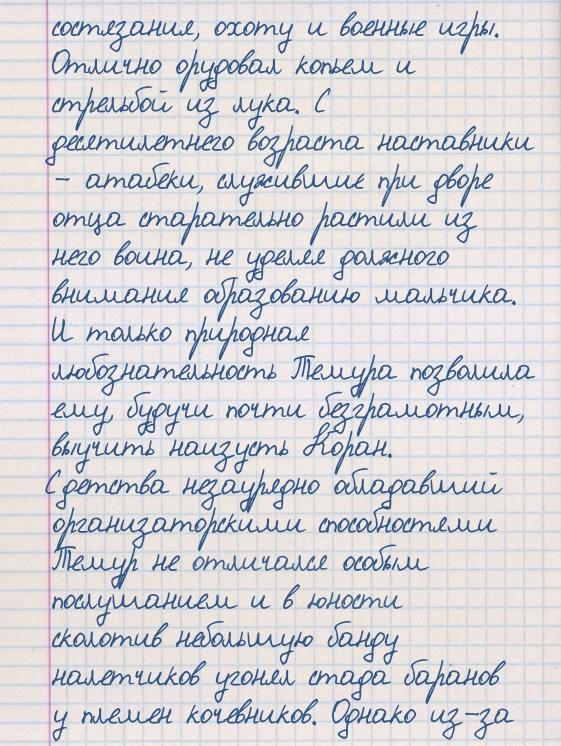 состязания, охоту и военные игры.
Отлично орудовал копьем и
стрельбой из лука. С
десятилетнего возраста наставники
– атабеки, служившие при дворе
отца старательно растили из
него воина, не уделяя должного
внимания образованию мальчика.
И только природная
любознательность Темура позволила
ему, будучи почти безграмотным,
выучить наизусть Коран.
С детства незаурядно обладавший
организаторскими способностями
Темур не отличался особым
послушанием и в юности
сколотив небольшую банду
налетчиков угонял стада баранов
у племен кочевников. Однако из-за